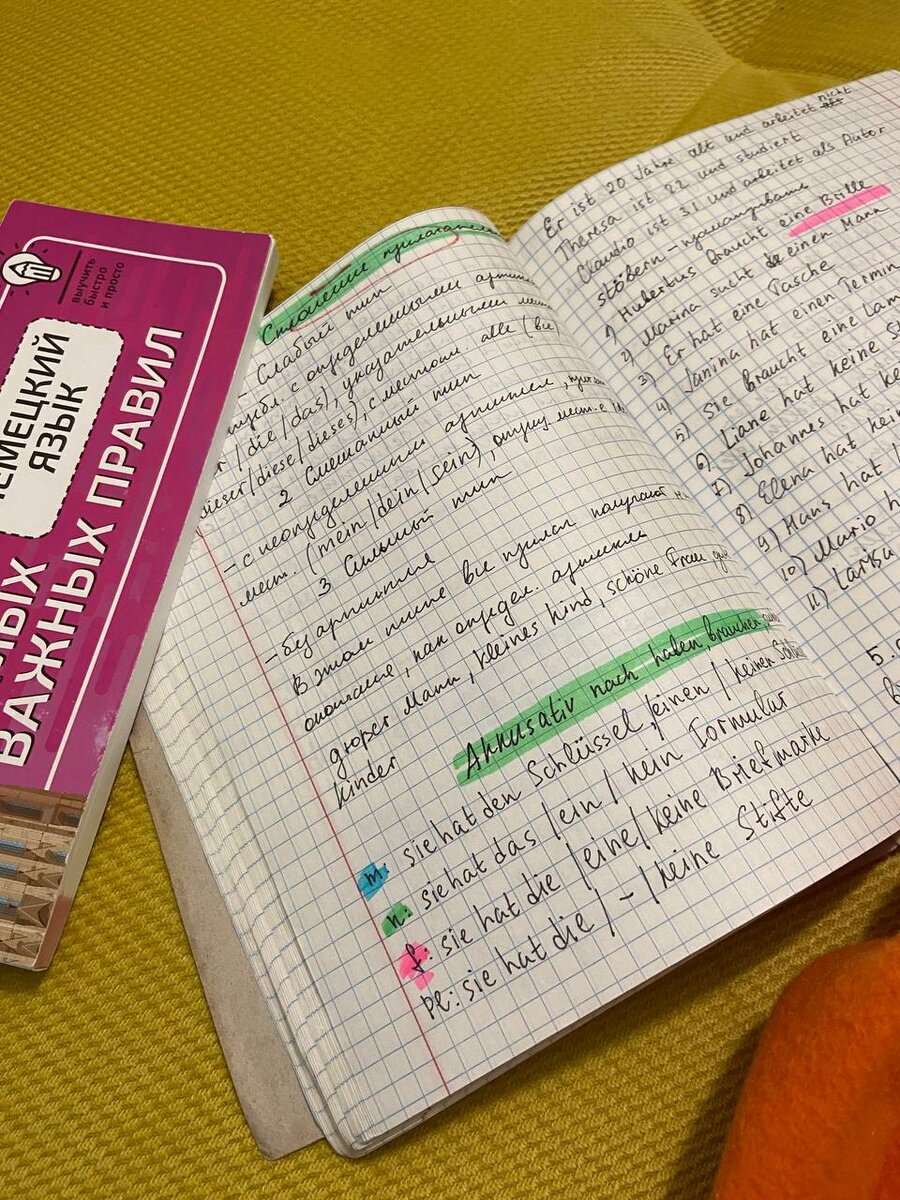 выучить
быстро
и просто
НЕМЕЦКИЙ
ЯЗЫК
ВАЖНЫХ ПРАВИЛ
Склонение
Слабый тип
с определенными
/die/das), указательными
dieser/diese/dieses), с местоим. alle (все
2 Смешанный тип
- с неопределенным артиклем,
мест. (mein/dein/sein),
3 Сильный тип
- без артикля
В этом типе все прилаг получают
окончание, как определ. артикля
Mann, kleines Kind, schöne Frau
kinder
Akkusativ nach haben, brauchen,
m: sie hat den Schlüssel, einen / keinen
n: sie hat das / ein / kein Formular
f: sie hat die / eine / keine Briefmarke
pl: sie hat die / - / keine Stifte
Er ist 20 Jahre alt und arbeitet nicht
Theresa ist 22 und studiert
Claudio ist 31 und arbeitet als Autor
stöbern -
1) Hubertus braucht eine Brille
2) Marina sucht einen Mann
3) Er hat eine Tasche
4) Janina hat einen Termin
5) Sie braucht eine
6) Liane hat keine
7) Johannes hat
8) Elena hat
9) Hans hat
10) Mario
11) Larisa
5.